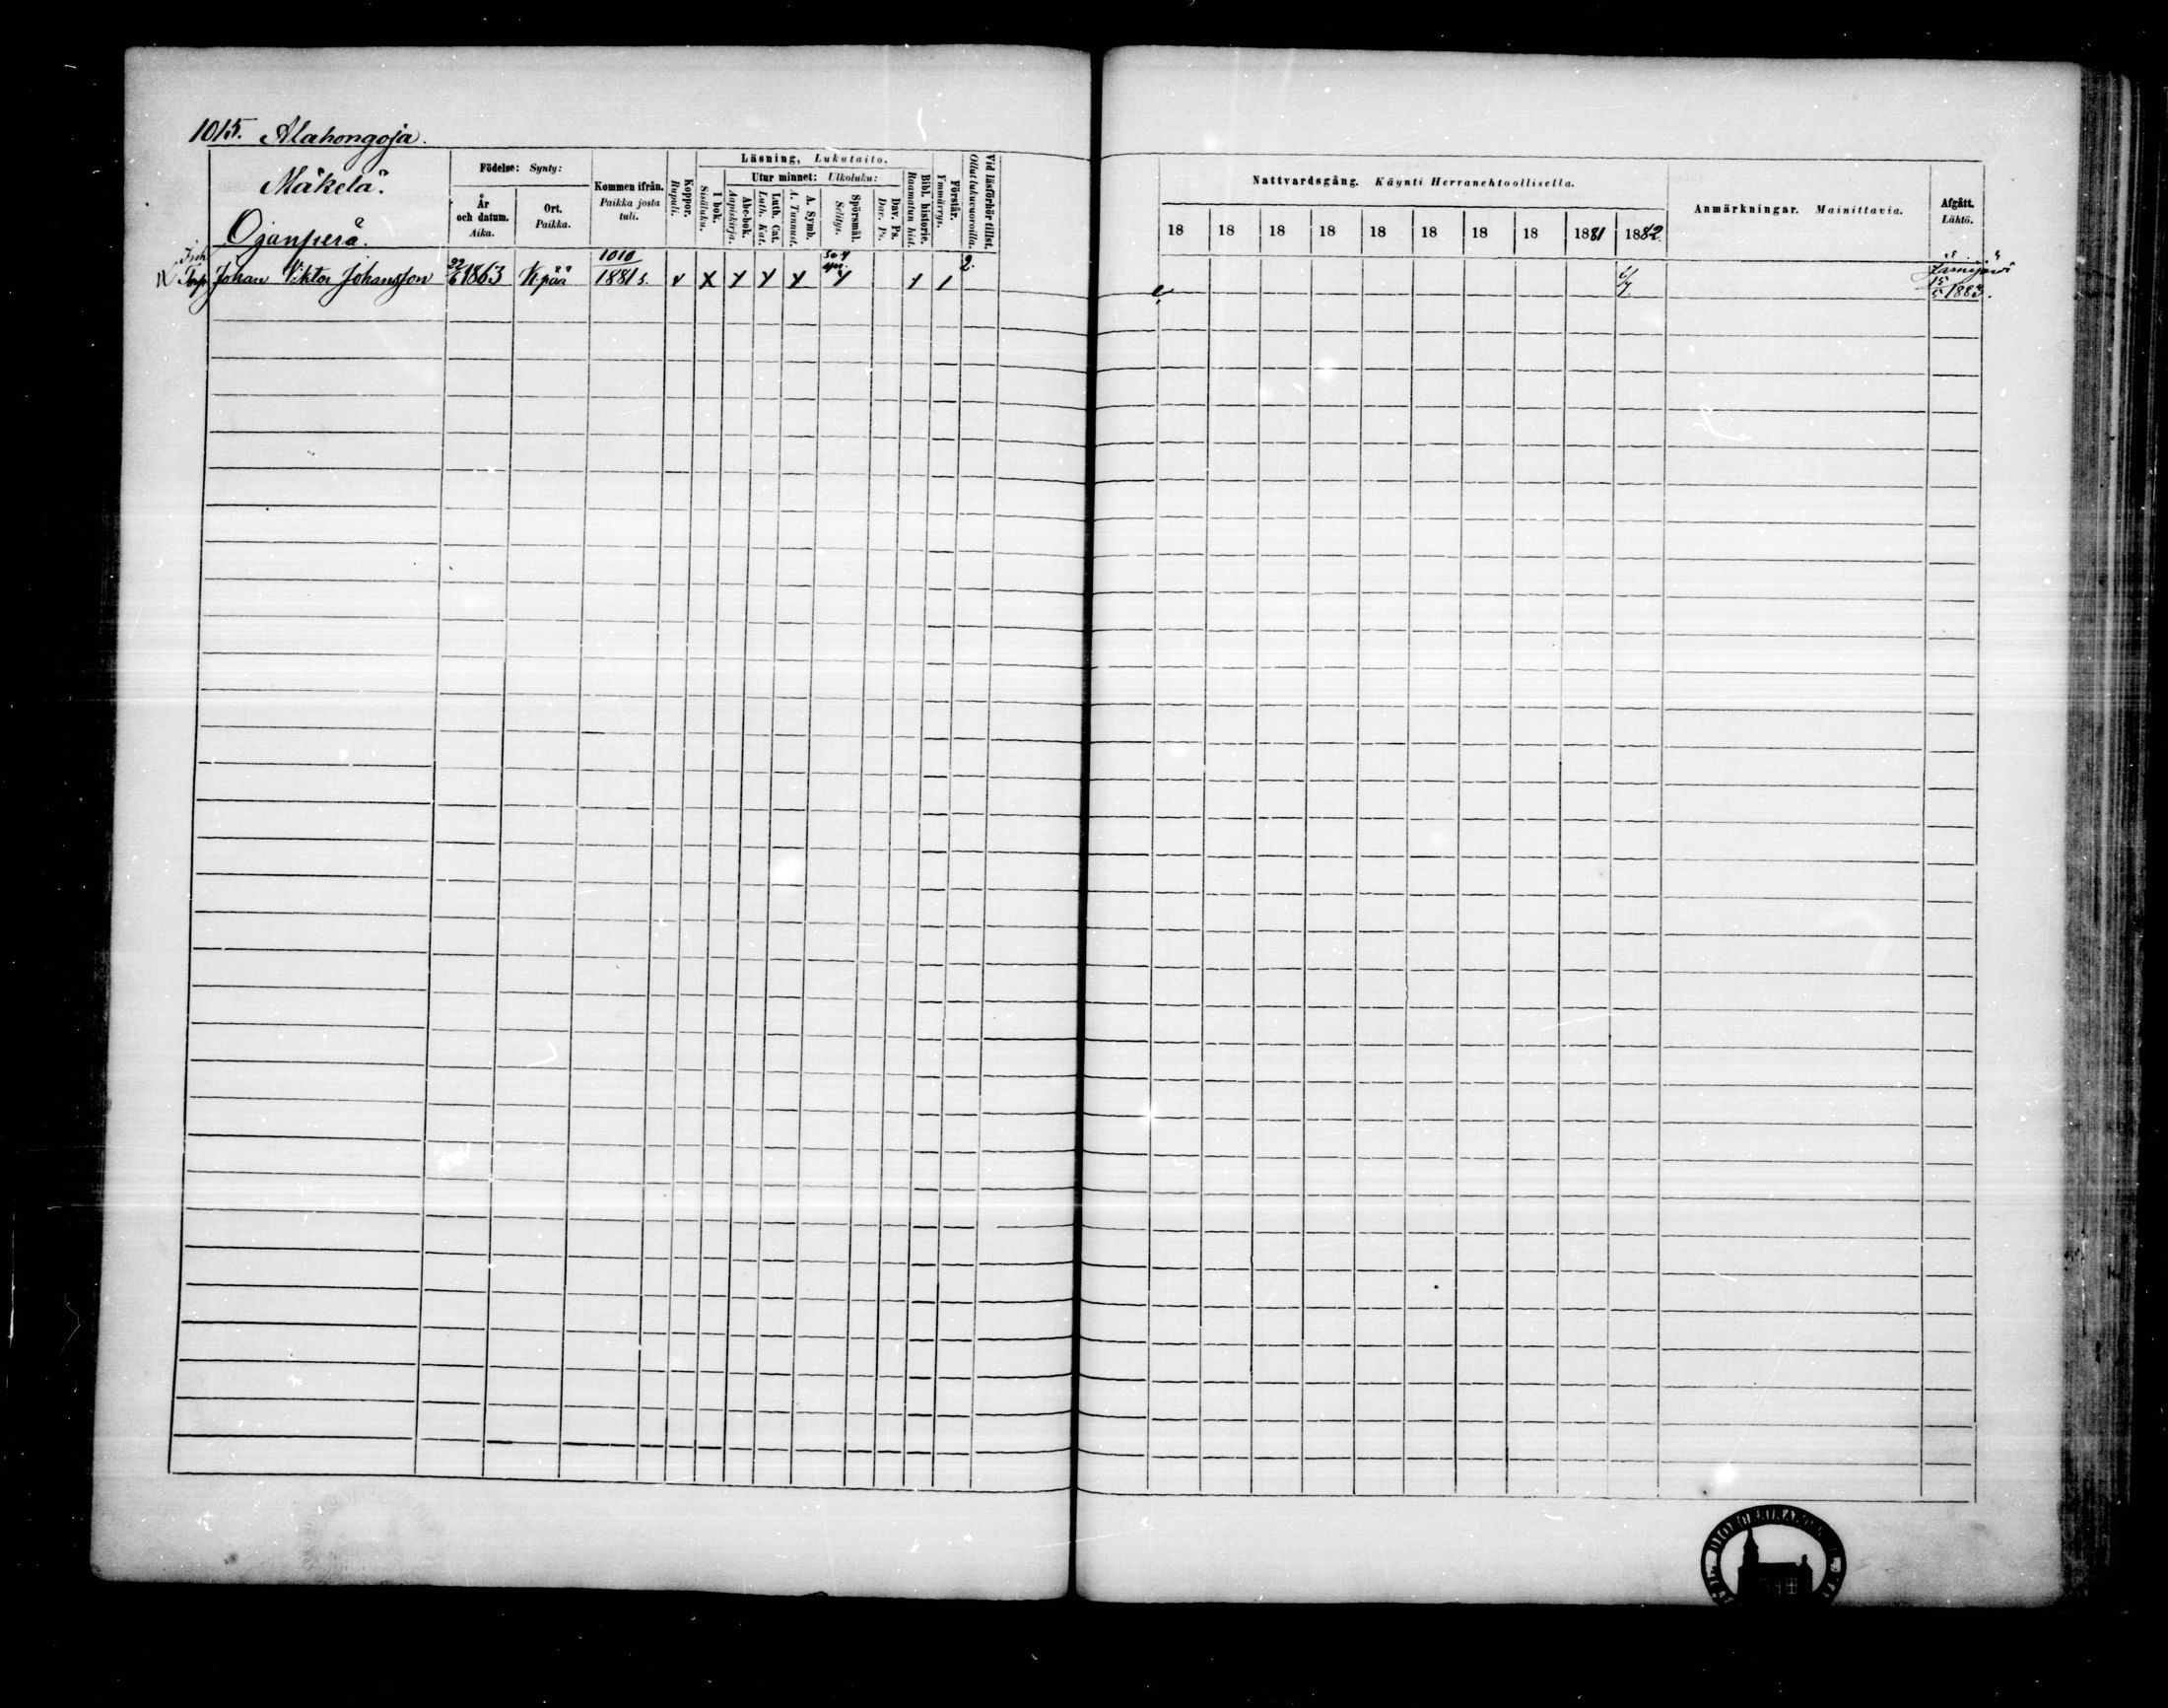 1015. Alahongoja.
Mäkelä.
Ojanperä.
Födelse: Synty:
År och datum. Aika.
Ort. Paikka.
Kommen ifrån. Paikka josta tuli.
Koppor. Rupuli.
Läsning, Lukutaito.
I bok. Sisäluku.
Utur minnet: Ulkoluku:
Abc-bok. Aapiskirja.
Luth. Cat. Luth. Kat.
A. Symb. A. Tunnust.
Spörsmål. Selitys.
Dav. Ps. Dav. Ps.
Bibl. historie. Raamatun hist.
Förstår. Ymmärrys.
Vid läsförhör tillst. Ollut lukuvuoroilla.
Nattvardsgång. Käynti Herranehtoollisella.
18 18 18 18 18 18 18 18 1881 1882.
Anmärkningar. Mainittavia.
Afgått. Lähtö.
Johan Viktor Johansson 22/6 1863 K:pää 1010 1881 s. 2.
15/5 1883.